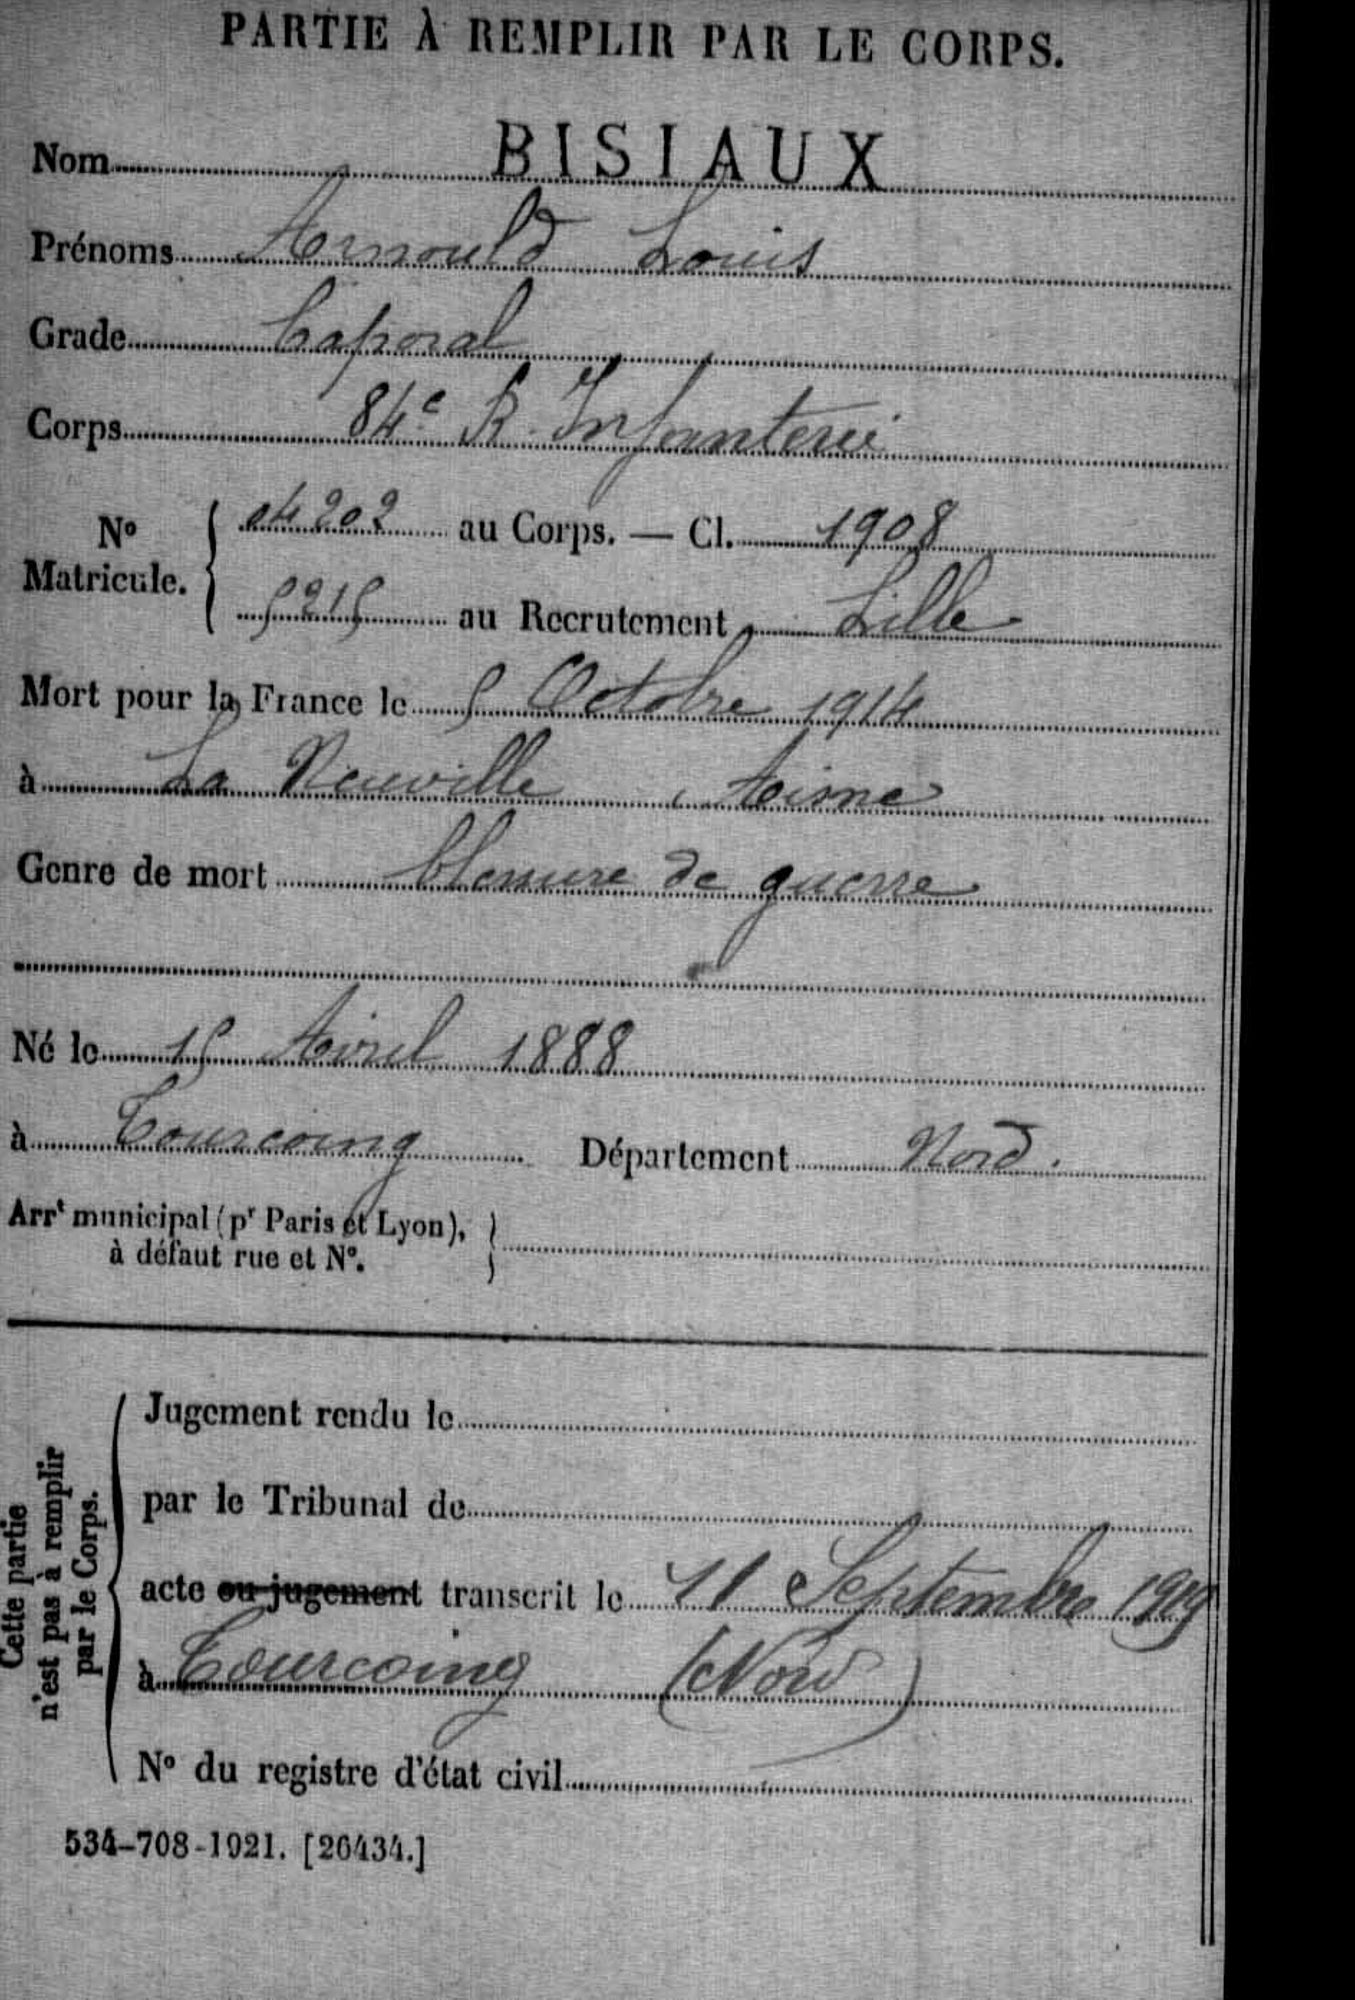 PARTIE À REMPLIR PAR LE CORPS.
Nom BISIAUX
Prénoms Arnould Louis
Grade Caporal
Corps 84e R. Infanterie
No Matricule. { 04202 au Corps. — Cl. 1908
5215 au Recrutement Lille
Mort pour la France le 5 Octobre 1914
à La Neuville Aisne
Genre de mort blessure de guerre
Né le 15 Avril 1888
à Tourcoing Département Nord.
Arrt municipal (pr Paris et Lyon), }
à défaut rue et No.
Cette partie
n'est pas à remplir
par le Corps.
Jugement rendu le
par le Tribunal de
acte ou jugement transcrit le 11 Septembre 1919
à Tourcoing (Nord)
No du registre d'état civil
534-708-1921. [26434.]